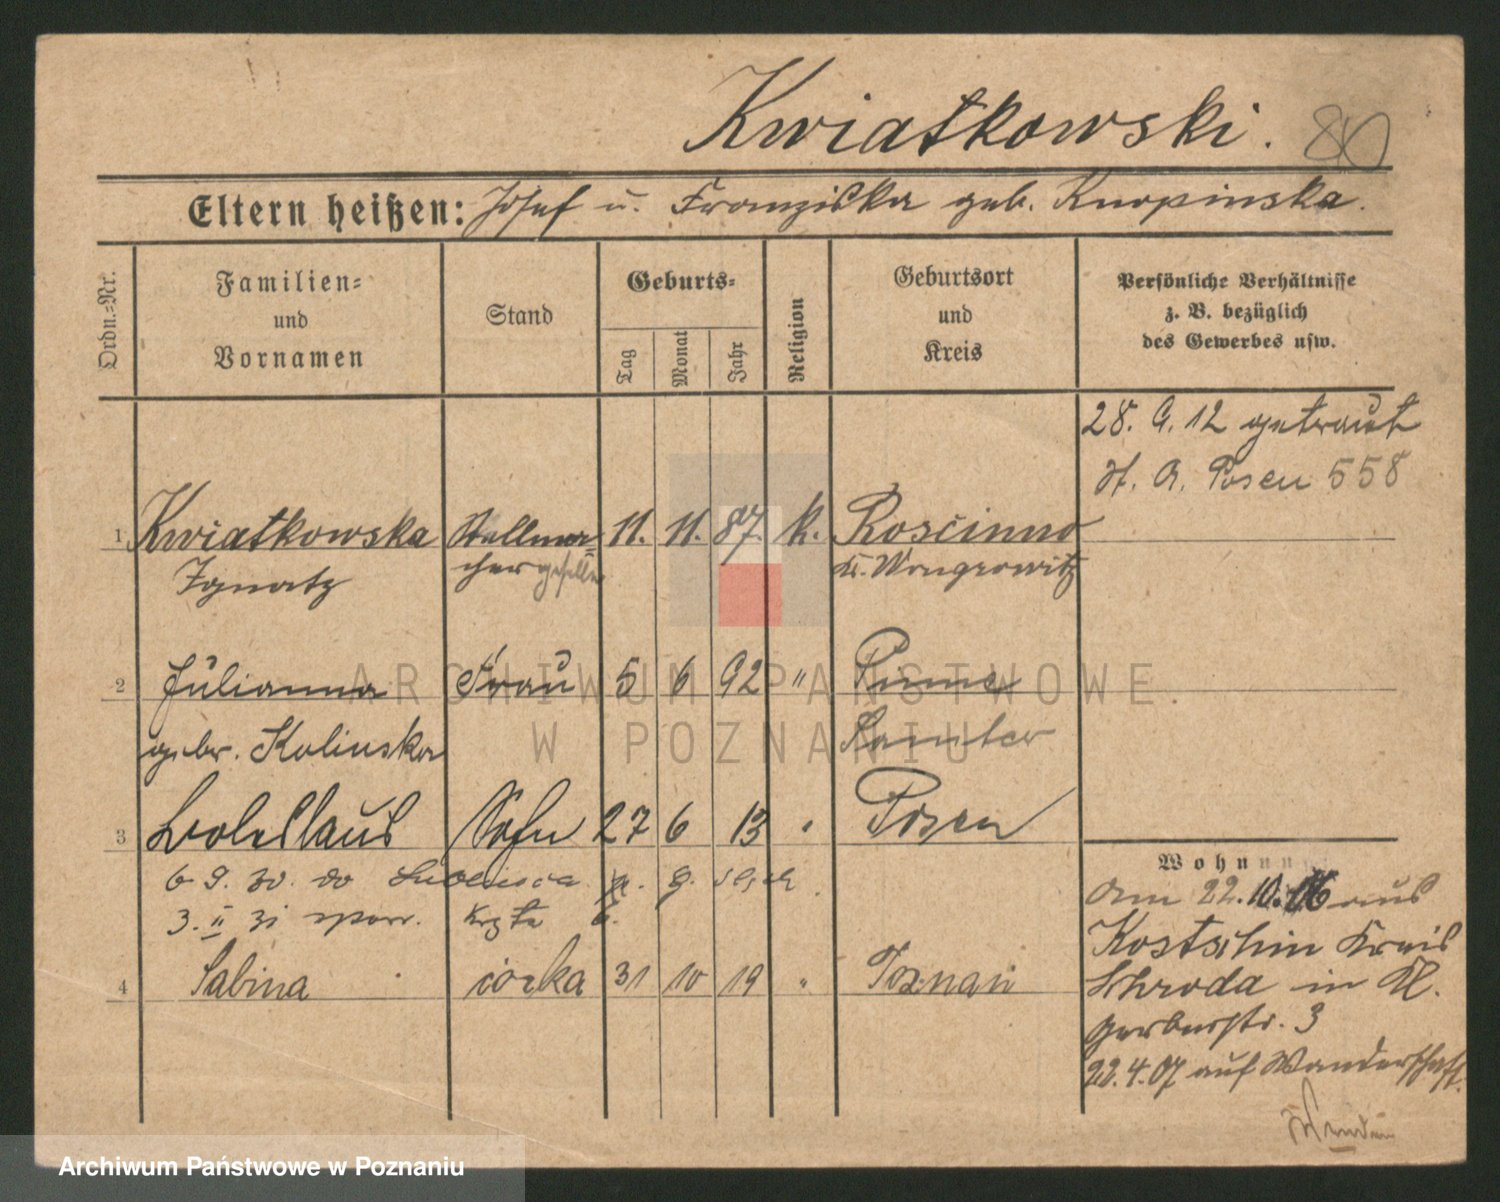 Kwiatkowski. 80
Eltern heißen: Josef u. Franziska geb. Knopinska.
Ordn.-Nr.
Familien-
und
Vornamen
Stand
Geburts-
Tag
Monat
Jahr
Religion
Geburtsort
und
Kreis
Persönliche Verhältnisse
z. B. bezüglich
des Gewerbes usw.
28. 9. 12 getraut
St. A. Posen 558
1 Kwiatkowska Stellma= 11. 11. 87. k. Roscinno
Ignatz chergeselle Kr. Wongrowitz
2 Julianna Frau 5 6 92 " Pinne
gebr. Kolinska Samter
3 Boleslaus Sohn 27 6 13 " Posen
6 9. 30. do
3. II 31 spow.
4 Sabina córka 31 10 19 " Poznań
Wohnun
Am 22. 10. 06 aus
Kostschin Kreis
Schroda in Kl.
Gerberstr. 3
22. 4. 07 auf Wanderschaft.
ARCHIWUM PAŃSTWOWE
W POZNANIU
Archiwum Państwowe w Poznaniu